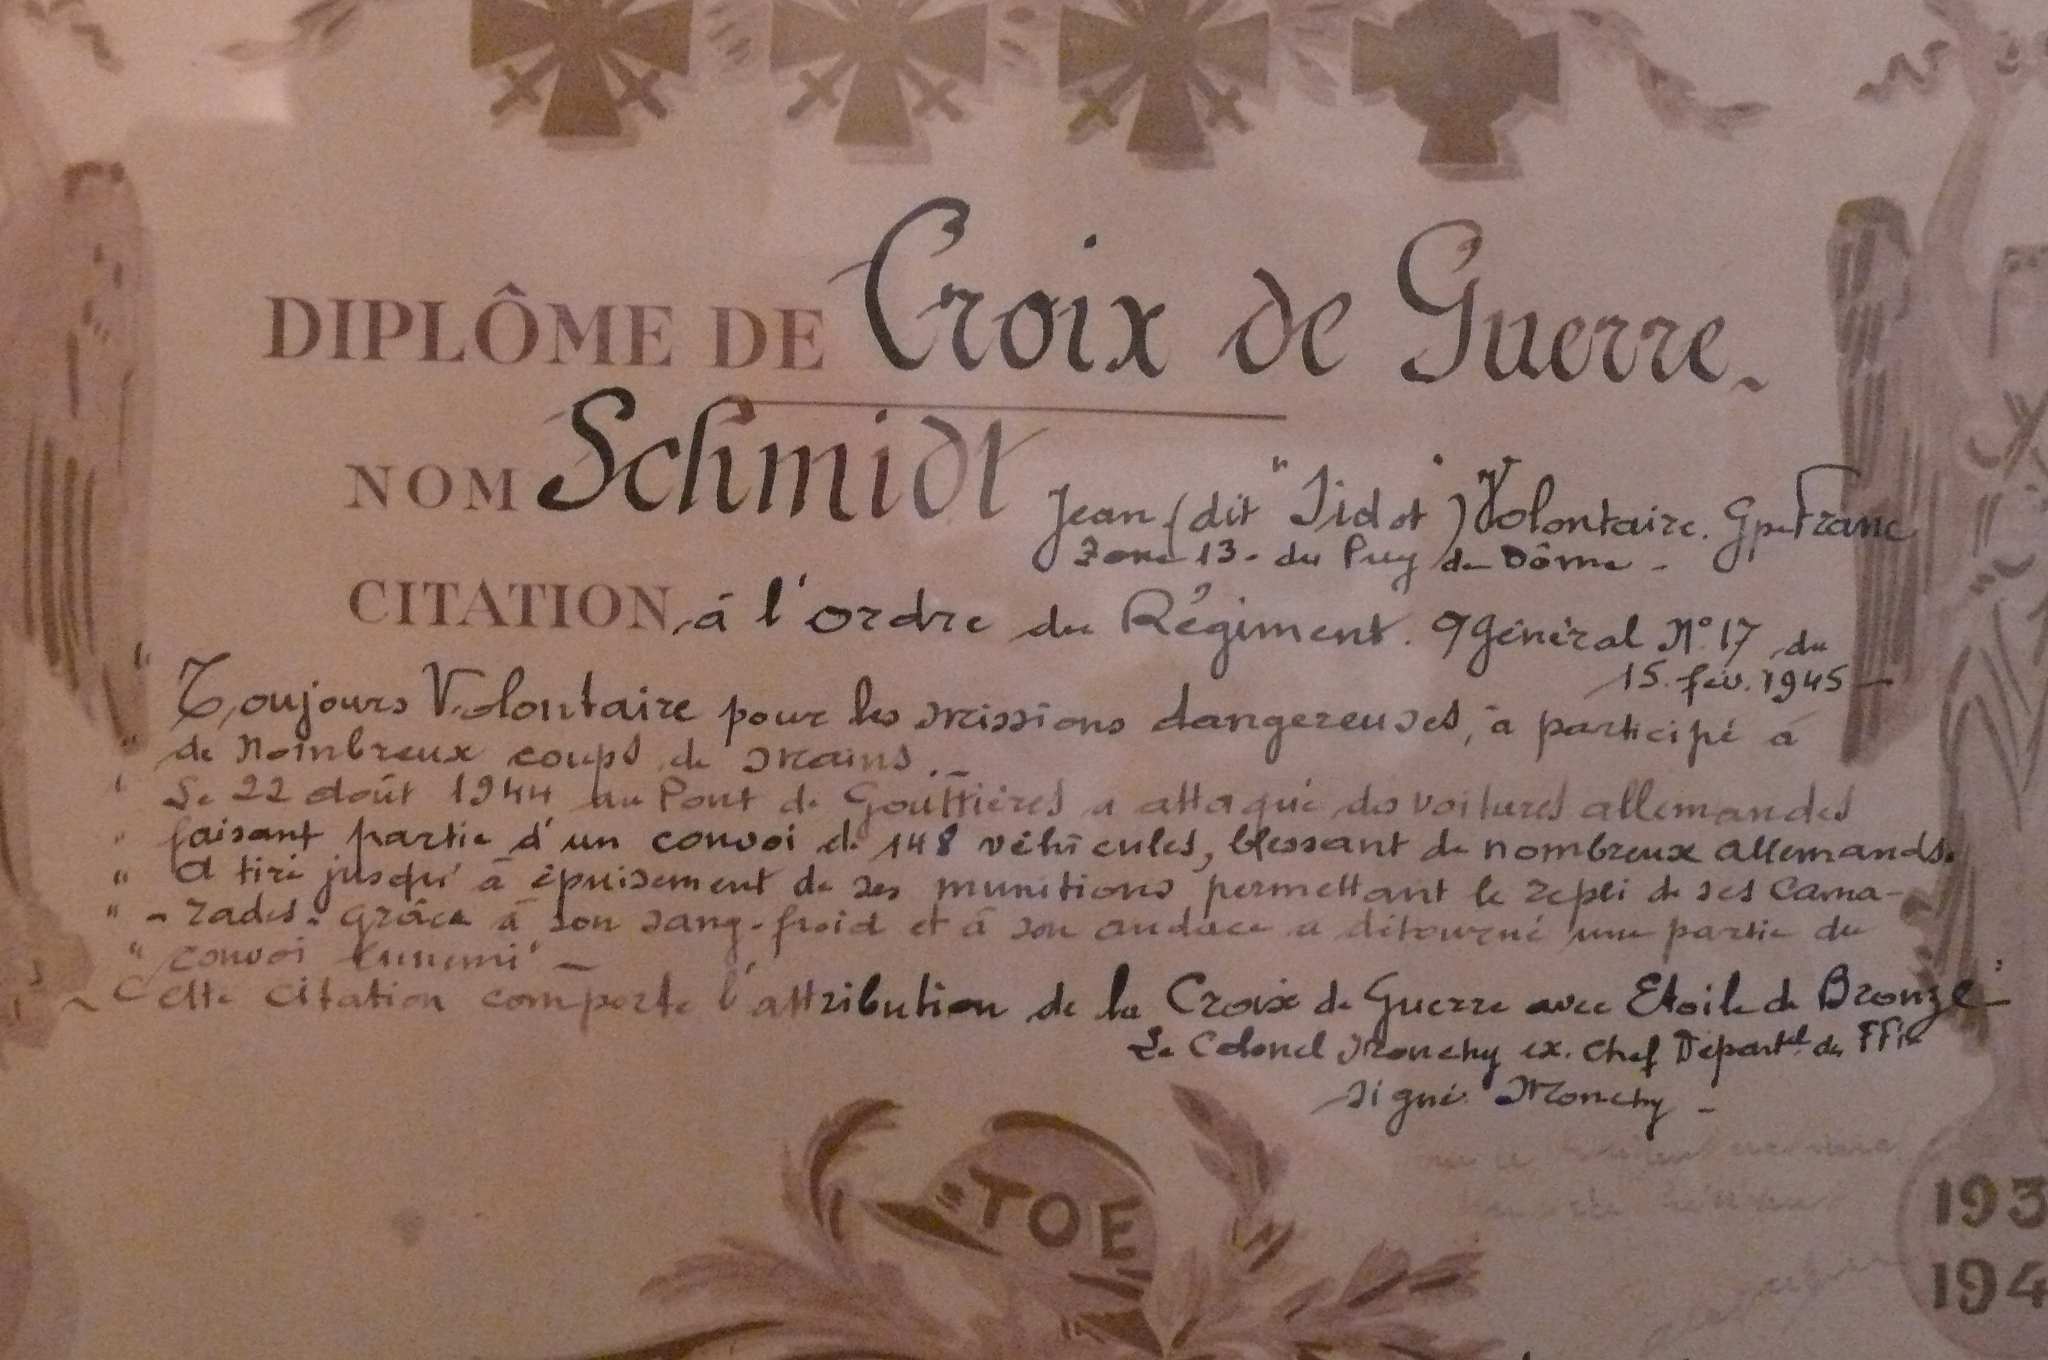 DIPLÔME DE Croix de Guerre
NOM Schmidt Jean (dit "Jidot") Volontaire. Gpe Franc
Zone 13 - du Puy de Dôme -
CITATION à l'ordre du Régiment. Général N° 17 du
15. fév. 1945 -
" Toujours Volontaire pour les missions dangereuses, a participé à
" de nombreux coups de mains. -
" Le 22 août 1944 au Pont de Gouttières a attaqué des voitures allemandes
" faisant partie d'un convoi de 148 véhicules, blessant de nombreux allemands.
" A tiré jusqu'à épuisement de ses munitions permettant le repli de ses Cama-
" - rades. Grâce à son sang-froid et à son audace a détourné une partie du
" convoi ennemi" -
Cette citation comporte l'attribution de la Croix de Guerre avec Etoile de Bronze -
Le Colonel Monchy ex. Chef Départel des FFI
signé: Monchy -
TOE
193
194